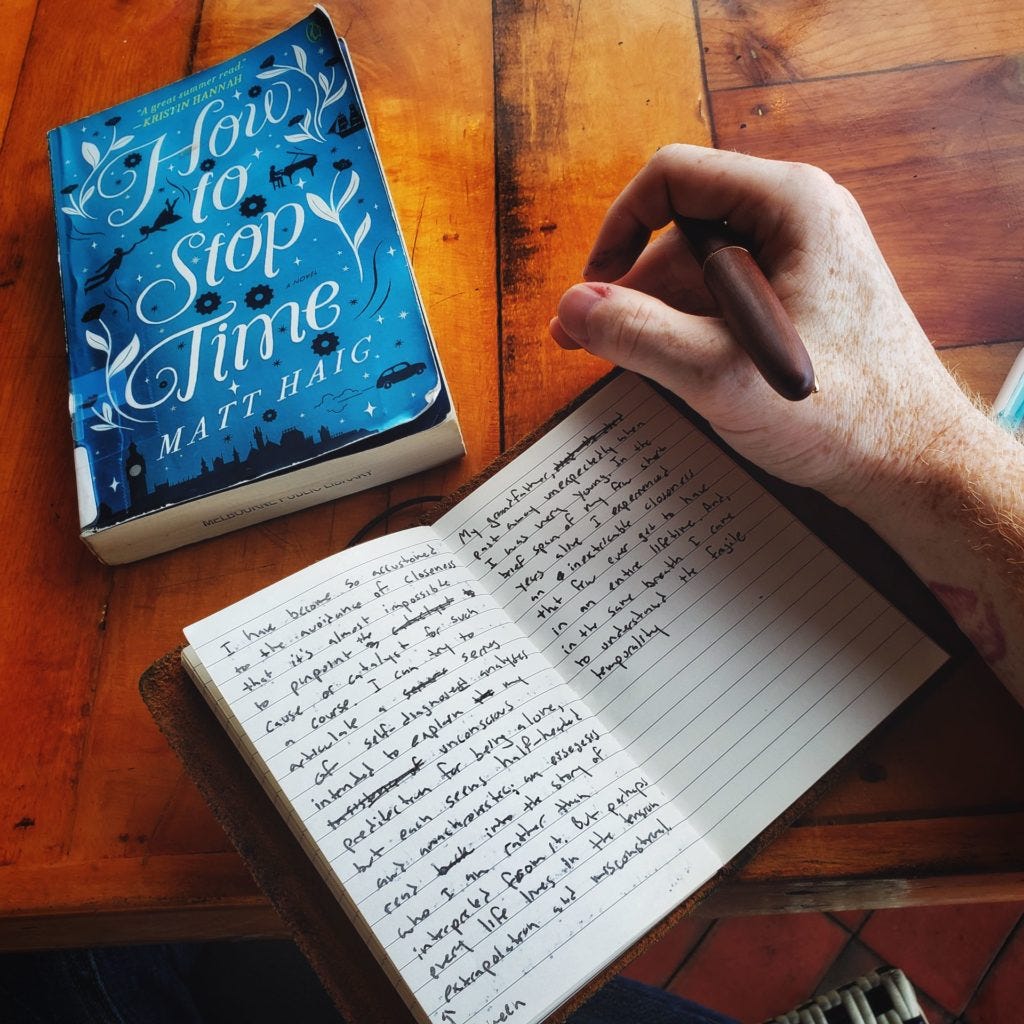 "A great summer read."
—KRISTIN HANNAH
How
to
Stop
Time
A NOVEL
MATT HAIG
MELBOURNE PUBLIC LIBRARY
I have become so accustomed
to the avoidance of closeness
that it's almost impossible
to pinpoint the
cause or catalyst for such
a course. I can try to
articulate a series
of self-diagnosed analyses
intended to explain my
unconscious
predilection for being alone,
but each seems half-hearted
and anachronistic; an exegesis
read into the story of
who I am rather than
interpreted from it. But perhaps
every life lives in the tension
of extrapolation and misconstrual
My grandfather,
past away unexpectedly when
I was very young. In the
brief span of my few short
years alive I experienced
an inextricable closeness
that few ever get to have
in an entire lifetime. And,
in the same breath I came
to understand the fragile
temporality